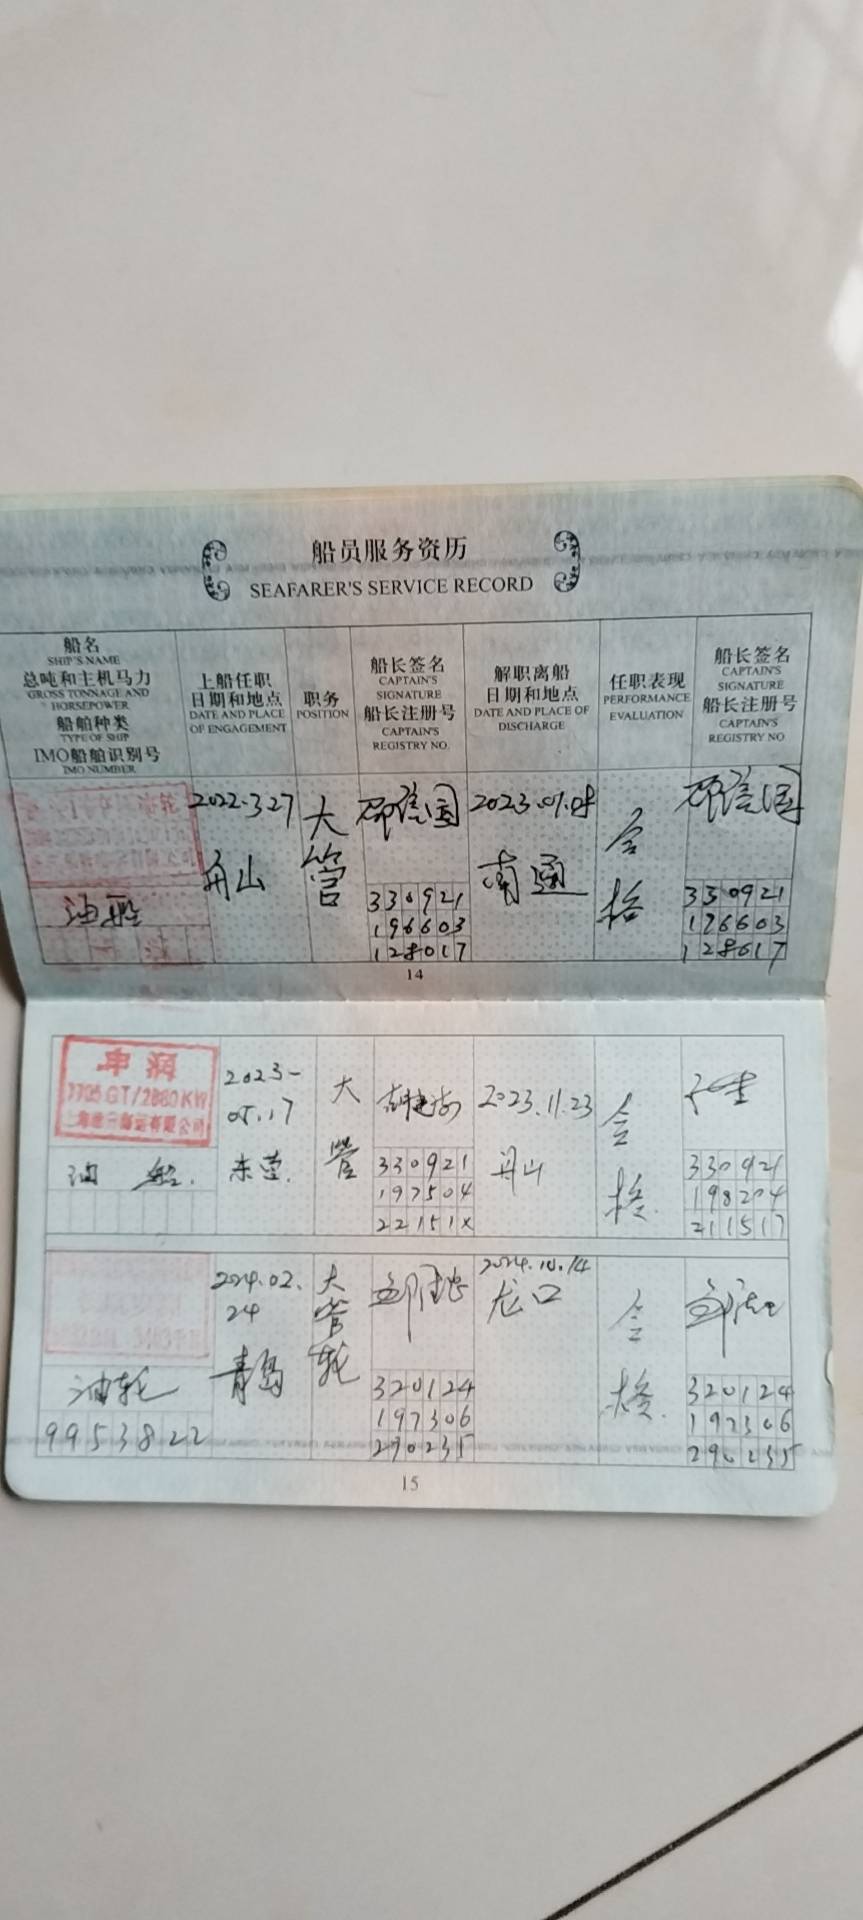 船员服务资历
SEAFARER'S SERVICE RECORD
船名
SHIP'S NAME
总吨和主机马力
GROSS TONNAGE AND
HORSEPOWER
船舶种类
TYPE OF SHIP
IMO船舶识别号
IMO NUMBER
上船任职
日期和地点
DATE AND PLACE
OF ENGAGEMENT
职务
POSITION
船长签名
CAPTAIN'S
SIGNATURE
船长注册号
CAPTAIN'S
REGISTRY NO.
解职离船
日期和地点
DATE AND PLACE OF
DISCHARGE
任职表现
PERFORMANCE
EVALUATION
船长签名
CAPTAIN'S
SIGNATURE
船长注册号
CAPTAIN'S
REGISTRY NO
油船
2022.3.27
舟山
大
管
330921
196603
128017
2023.01.08
南通
合
格
330921
196603
128017
14
申润
7705GT/2860KW
油船.
2023-
05.17
东营.
大
管
330921
197504
22151X
2023.11.23
舟山
合
格.
330921
198204
211517
油轮
9953822
2024.02.
24
青岛
大
管
轮
320124
197306
290235
2024.10.14
龙口
合
格.
320124
197306
290235
15